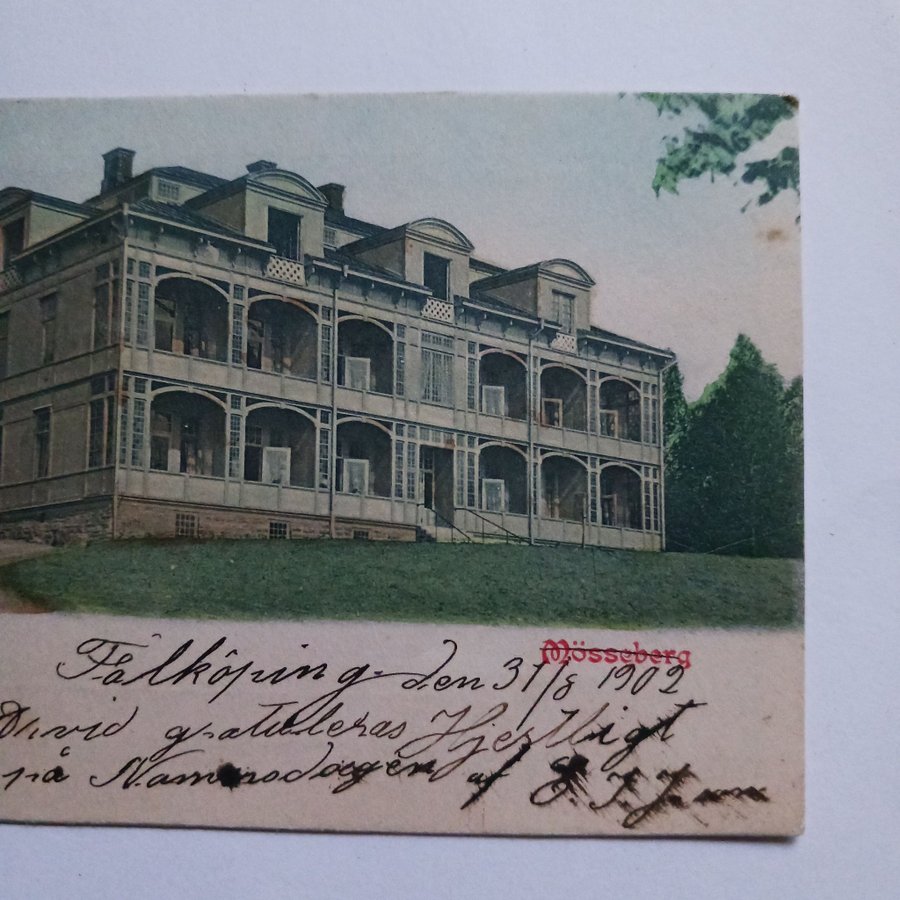 Mösseberg
Falköping den 31/8 1902
David gratuleras Hjertligt
på Namnsdagen af